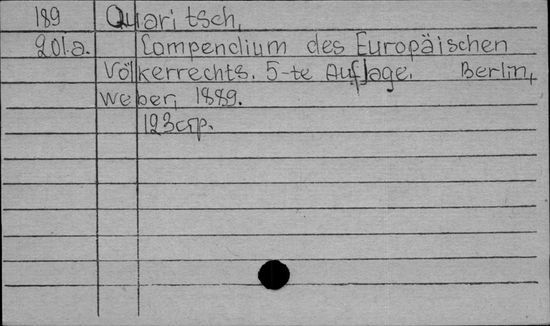 189 Quaritsch,
201.a. Compendium des Europäischen
Völkerrechts. 5-te Auflage. Berlin,
Weber, 1889.
123стр.